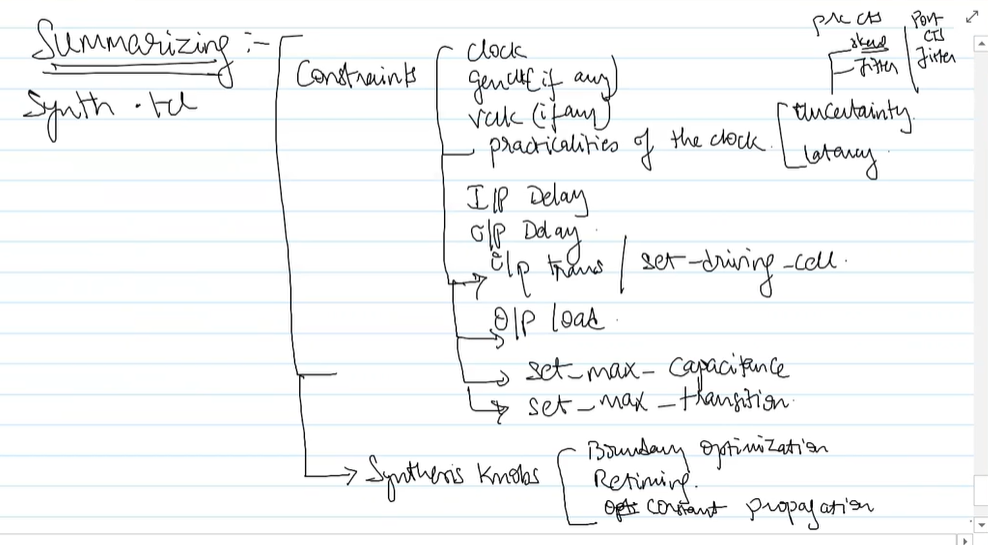 Summarizing :-
Synth . tcl
Constraints
clock
genclk (if any)
vclk (if any)
practicalities of the clock.
pre CTS
skew
Jitter
Post
CTS
Jitter
Uncertainty
latency
I/P Delay
O/P Delay
I/p trans / set-driving-cell.
O/P load.
set-max-capacitance
set-max-transition.
Synthesis Knobs
Boundary optimization
Retiming.
constant propagation